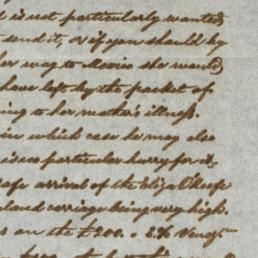 is not particularly wanted
send it, or if you should by
her way to Mexico she would
have left by the packet of
ing to her mother's illness.
in which case he may also
is no particular hurry for it
safe arrival of the Eliza Keefe
land carriage being very high.
on the £200.